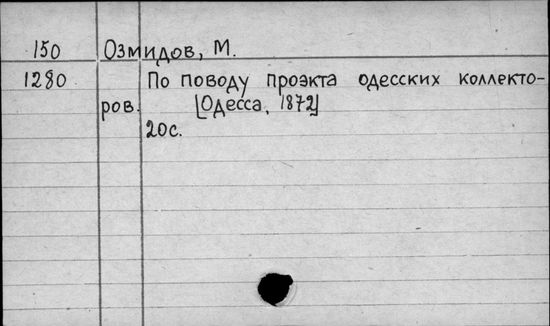 150 Озмидов, М.
1280 По поводу проэкта одесских коллекто-
ров. [Одесса, 1872]
20с.